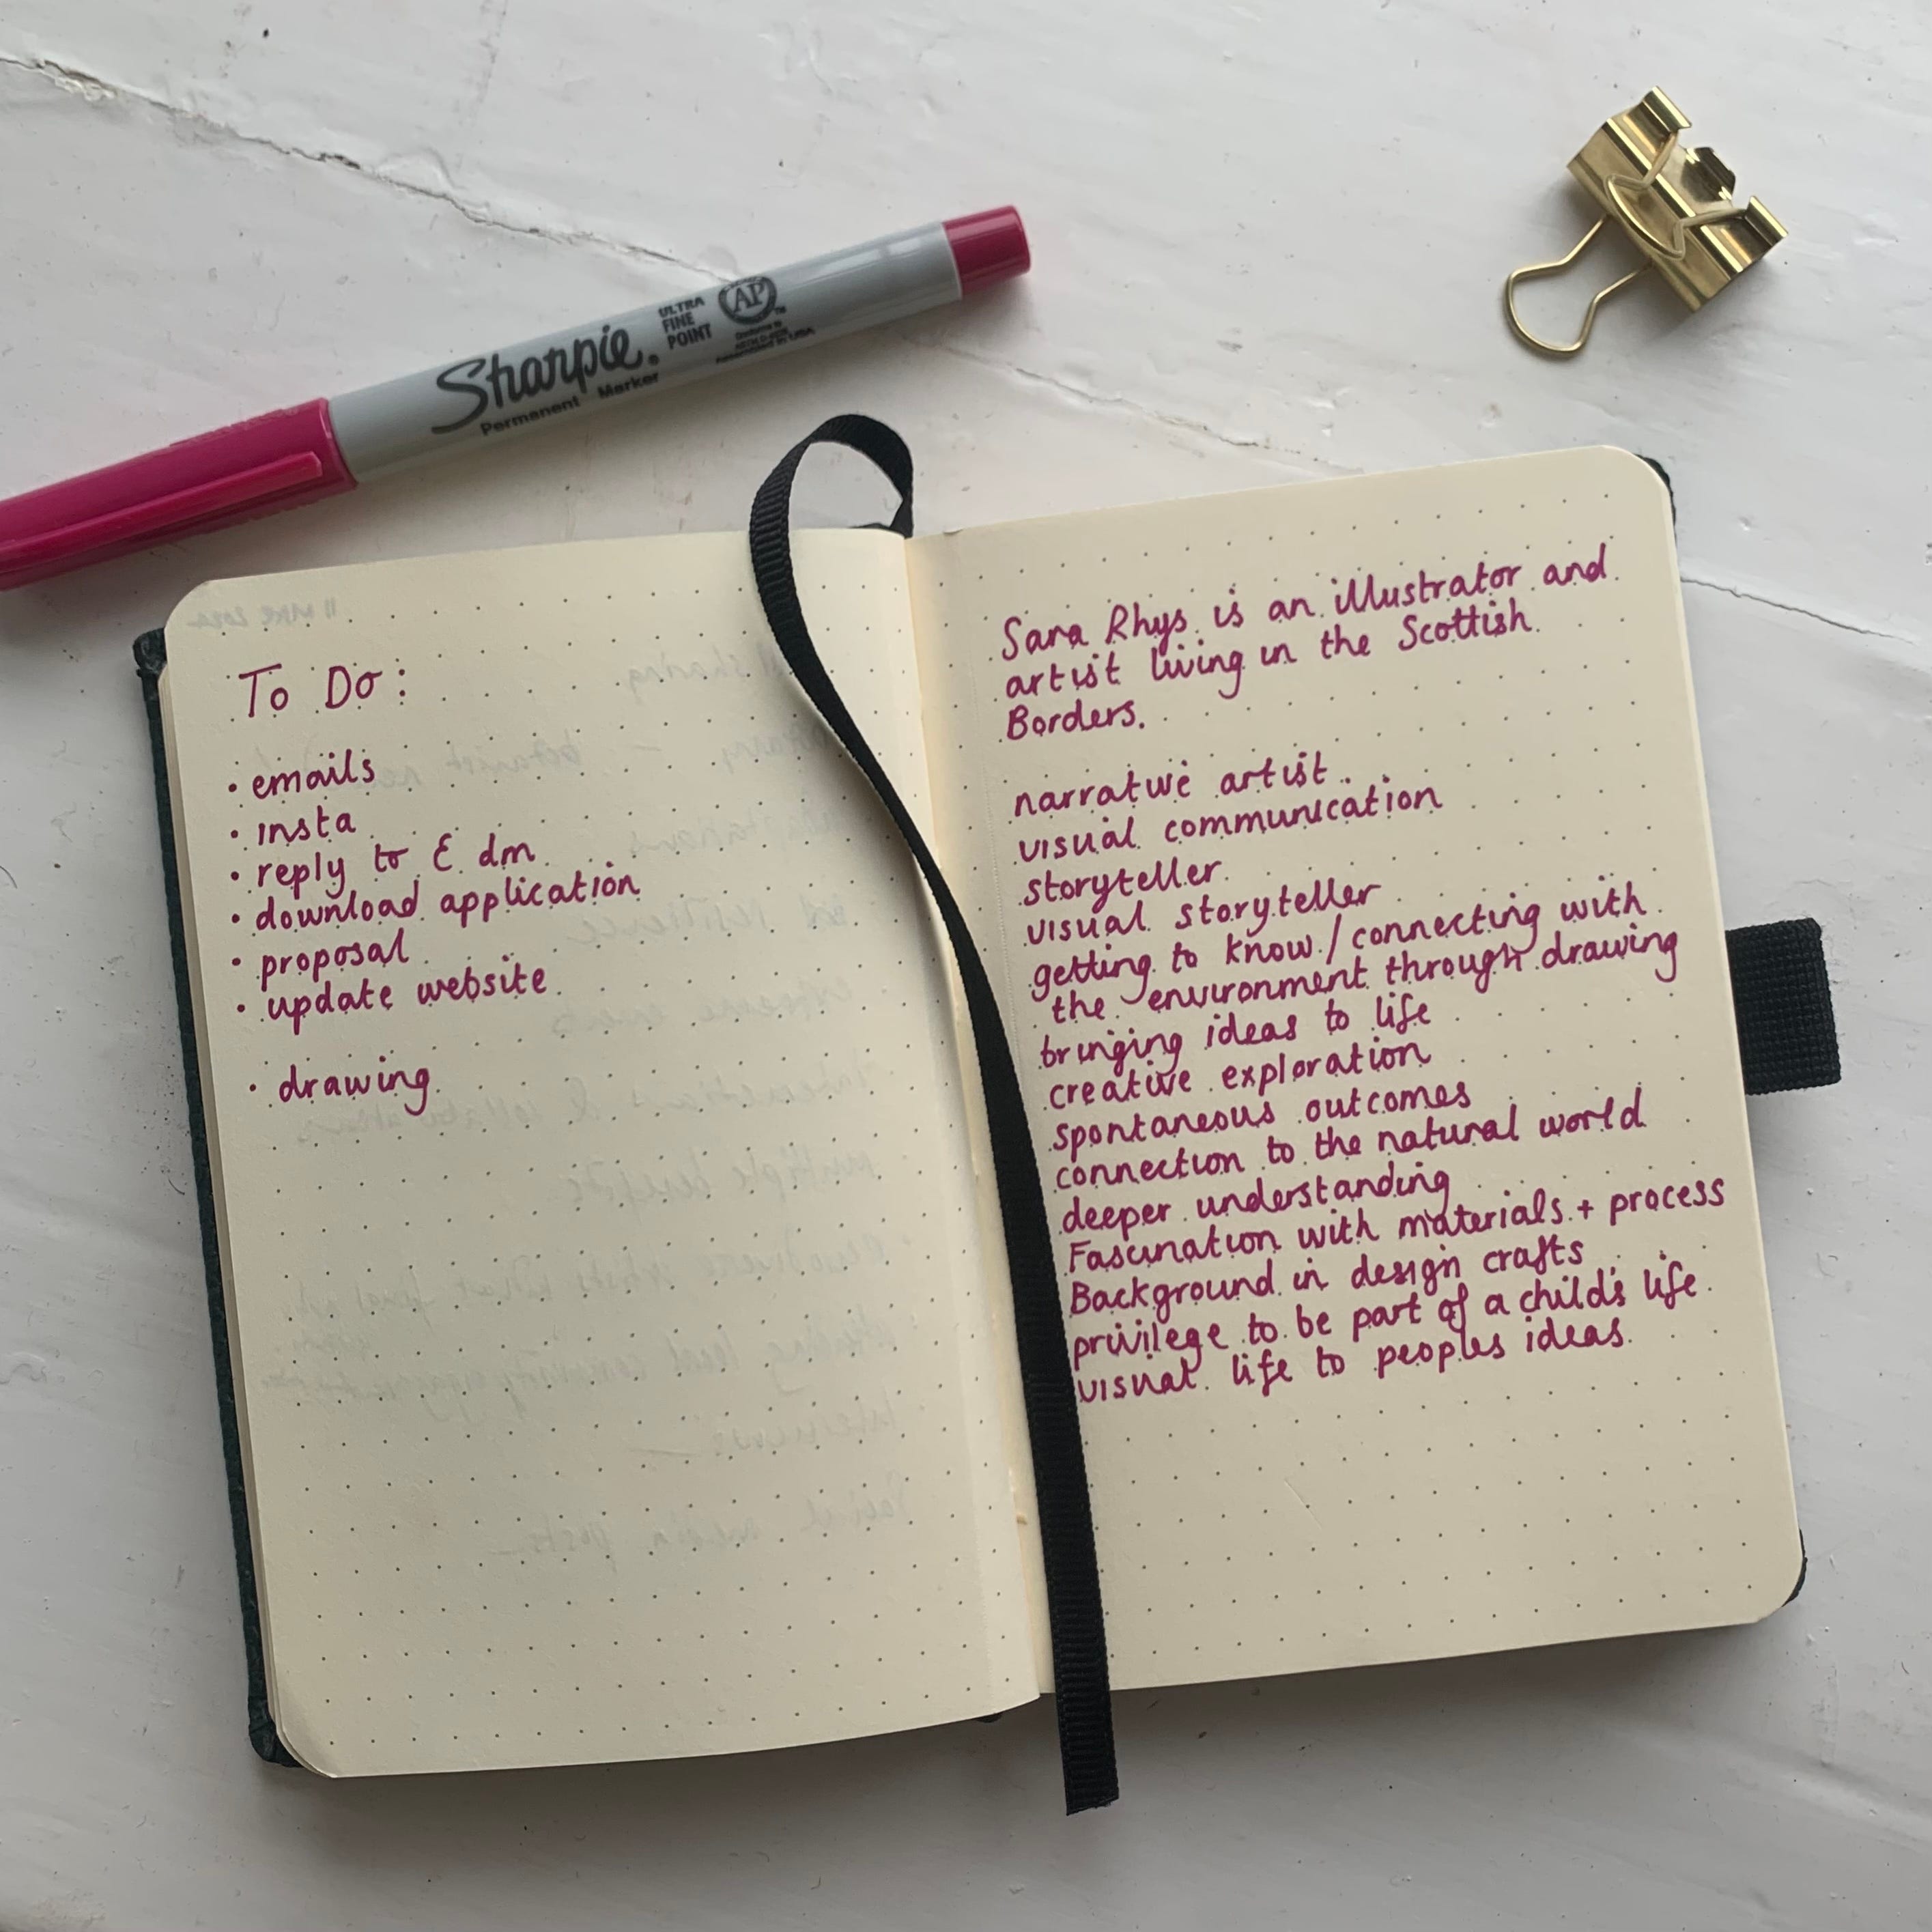 Sharpie.
Permanent Marker
ULTRA
FINE
POINT
AP
To Do:
• emails
• insta
• reply to E dm
• download application
• proposal
• update website
• drawing
Sara Rhys is an illustrator and
artist living in the Scottish
Borders.
narrative artist
visual communication
storyteller
visual storyteller
getting to know / connecting with
the environment through drawing
bringing ideas to life
creative exploration
spontaneous outcomes
connection to the natural world
deeper understanding
Fascination with materials + process
Background in design crafts
privilege to be part of a child's life
visual life to peoples ideas.